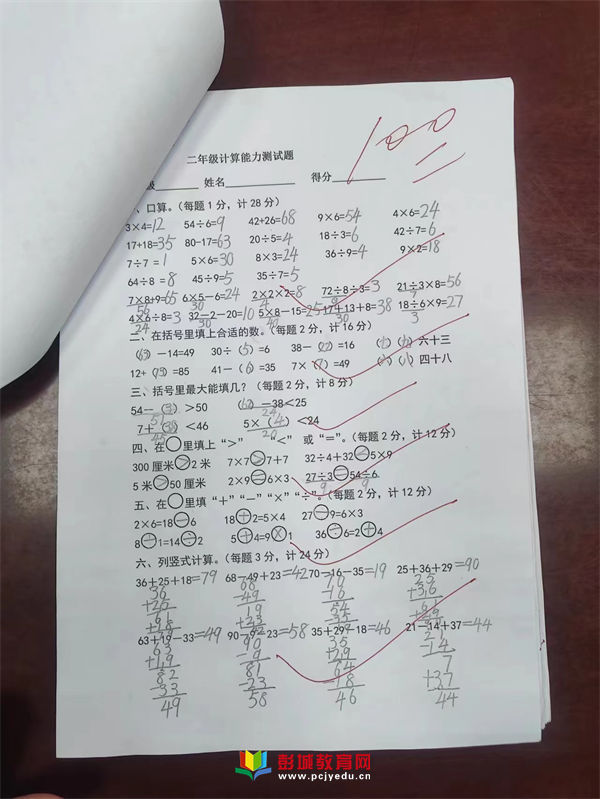 100
二年级计算能力测试题
级 姓名 得分
、口算。（每题1分，计28分）
3×4=12 54÷6=9 42+26=68 9×6=54 4×6=24
17+18=35 80-17=63 20÷5=4 18÷3=6 42÷7=6
7÷7=1 5×6=30 8×3=24 36÷9=4 9×2=18
64÷8=8 45÷9=5 35÷7=5
7×8+9=65 6×5-6=24 2×2×2=8 72÷8÷3=3 21÷3×8=56
56 30 4 9
4×6÷8=3 32-2-20=10 5×8-15=25 17+13+8=38 18÷6×9=27
24 30 40 30 3
二、在括号里填上合适的数。（每题2分，计16分）
（63）-14=49 30÷（5）=6 38-（22）=16 （）（）六十三
12+（73）=85 41-（6）=35 7×（7）=49 （）（八）四十八
三、括号里最大能填几？（每题2分，计8分）
54-（3）>50 （62）-38<25
51 24
7+（38）<46 5×（4）<24
45 20
四、在○里填上“>” “<” 或“=”。（每题2分，计12分）
300厘米>2米 7×7>7+7 32÷4+32 5×9
5米>50厘米 2×9=6×3 27÷3=54÷6
9 9
五、在○里填“+”“-”“×”“÷”。（每题2分，计12分）
2×6=18-6 18+2=5×4 27-9=6×3
8+1=14 2 5+4=9×1 36-6=2 4
六、列竖式计算。（每题3分，计24分）
36+25+18=79 68-49+23=42 70-16-35=19 25+36+29=90
36 68 25
+25 -49 +36
61 19 54 61
+18 +23 35 +29
63+19-33=49 90-9-23=58 35+29-18=46 21-14+37=44
63 90 35 21
+19 -9 +29 -14
82 81 64 7
-33 -23 -18 +37
49 58 46 44
彭城教育网
www.pcjyedu.cn